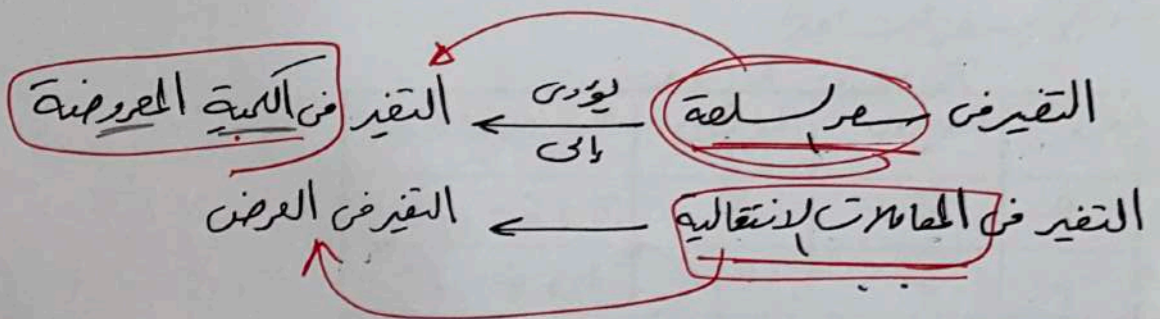 التغير فى سعر السلعة يؤدى إلى التغير فى الكمية المعروضة
التغير فى المعاملات الانتقالية التغير فى العرض